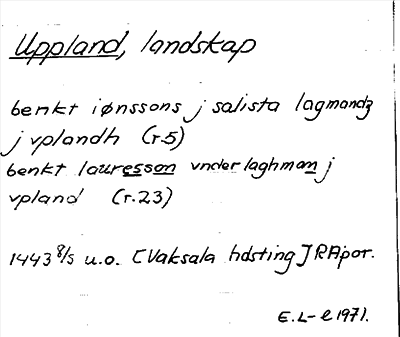 Uppland, landskap
benkt iønssons j salista lagmandz
j vplandh (r.5)
benkt lauresson vnderlaghman j
vpland (r.23)
1443 8/5 u.o. [Vaksala hdsting] RAp or.
E. L-e 1971.